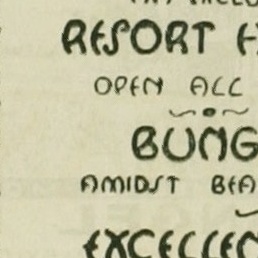 RESORT
OPEN ALL
BUNG
AMIDST BEA
EXCELLEN